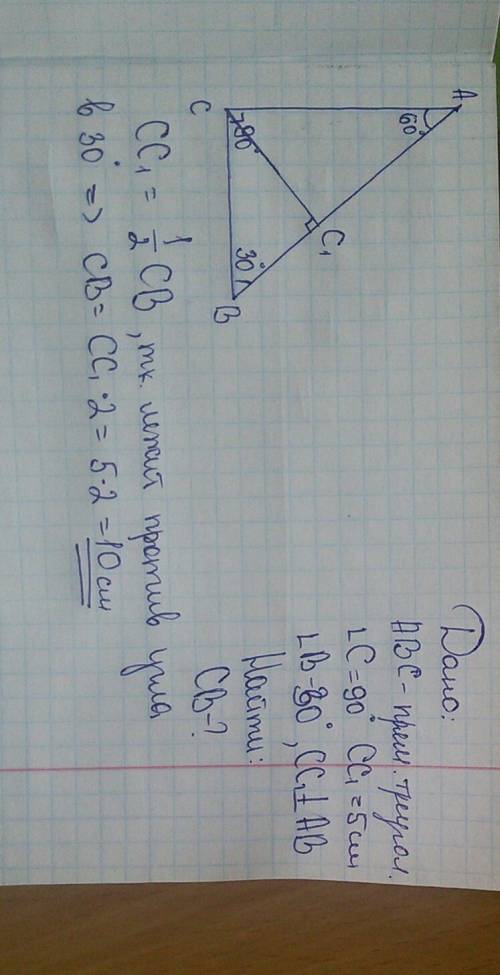 Дано:
ABC - прям. треугол.
∟C = 90° CC₁ = 5 см
∟B = 30°, CC₁ ⊥ AB
Найти:
CB - ?
A
60°
C₁
C
90°
30°
B
CC₁ = 1/2 CB, т.к. лежит против угла
в 30° => CB = CC₁ · 2 = 5 · 2 = 10 см